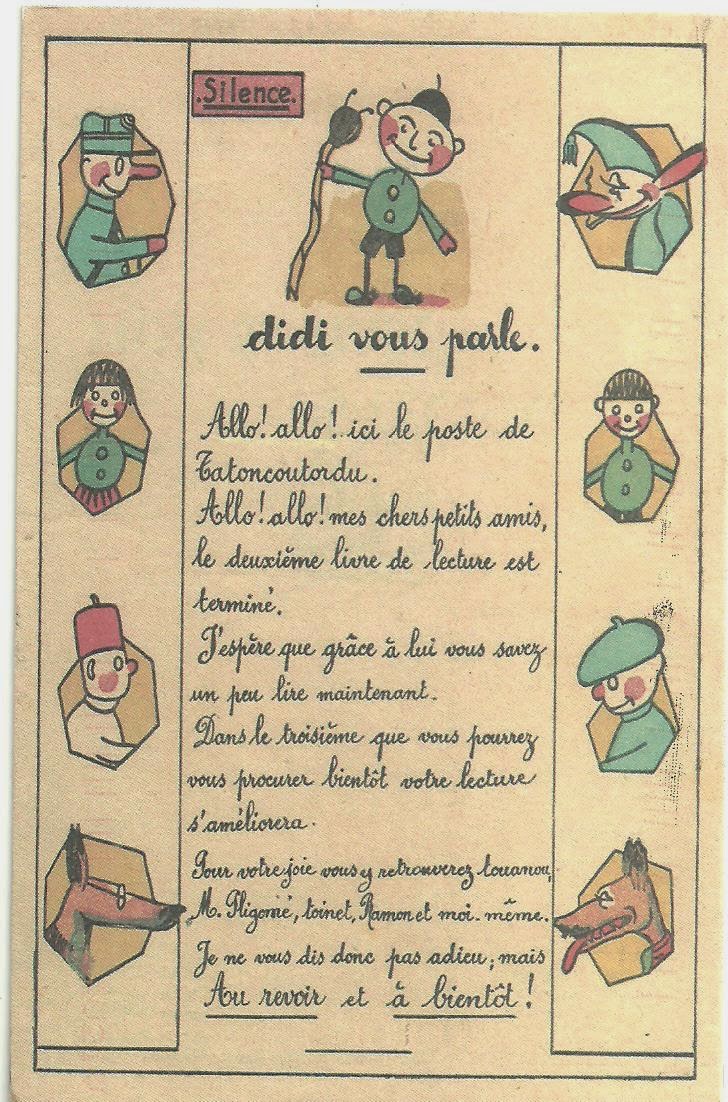 .Silence.
didi vous parle.
Allo! allo! ici le poste de
Tatoncoutordu.
Allo! allo! mes chers petits amis,
le deuxième livre de lecture est
terminé.
J'espère que grâce à lui vous savez
un peu lire maintenant.
Dans le troisième que vous pourrez
vous procurer bientôt votre lecture
s'améliorera.
Pour votre joie vous y retrouverez touanou,
M. Pligonié, toinet, Ramon et moi-même.
Je ne vous dis donc pas adieu; mais
Au revoir et à bientôt!